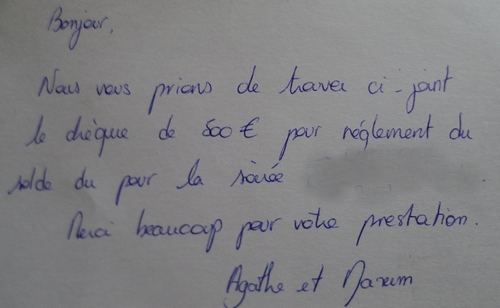 Bonjour,
Nous vous prions de trouver ci-joint
le chèque de 500 € pour réglement du
solde du pour la soirée
Merci beaucoup pour votre prestation.
Agathe et